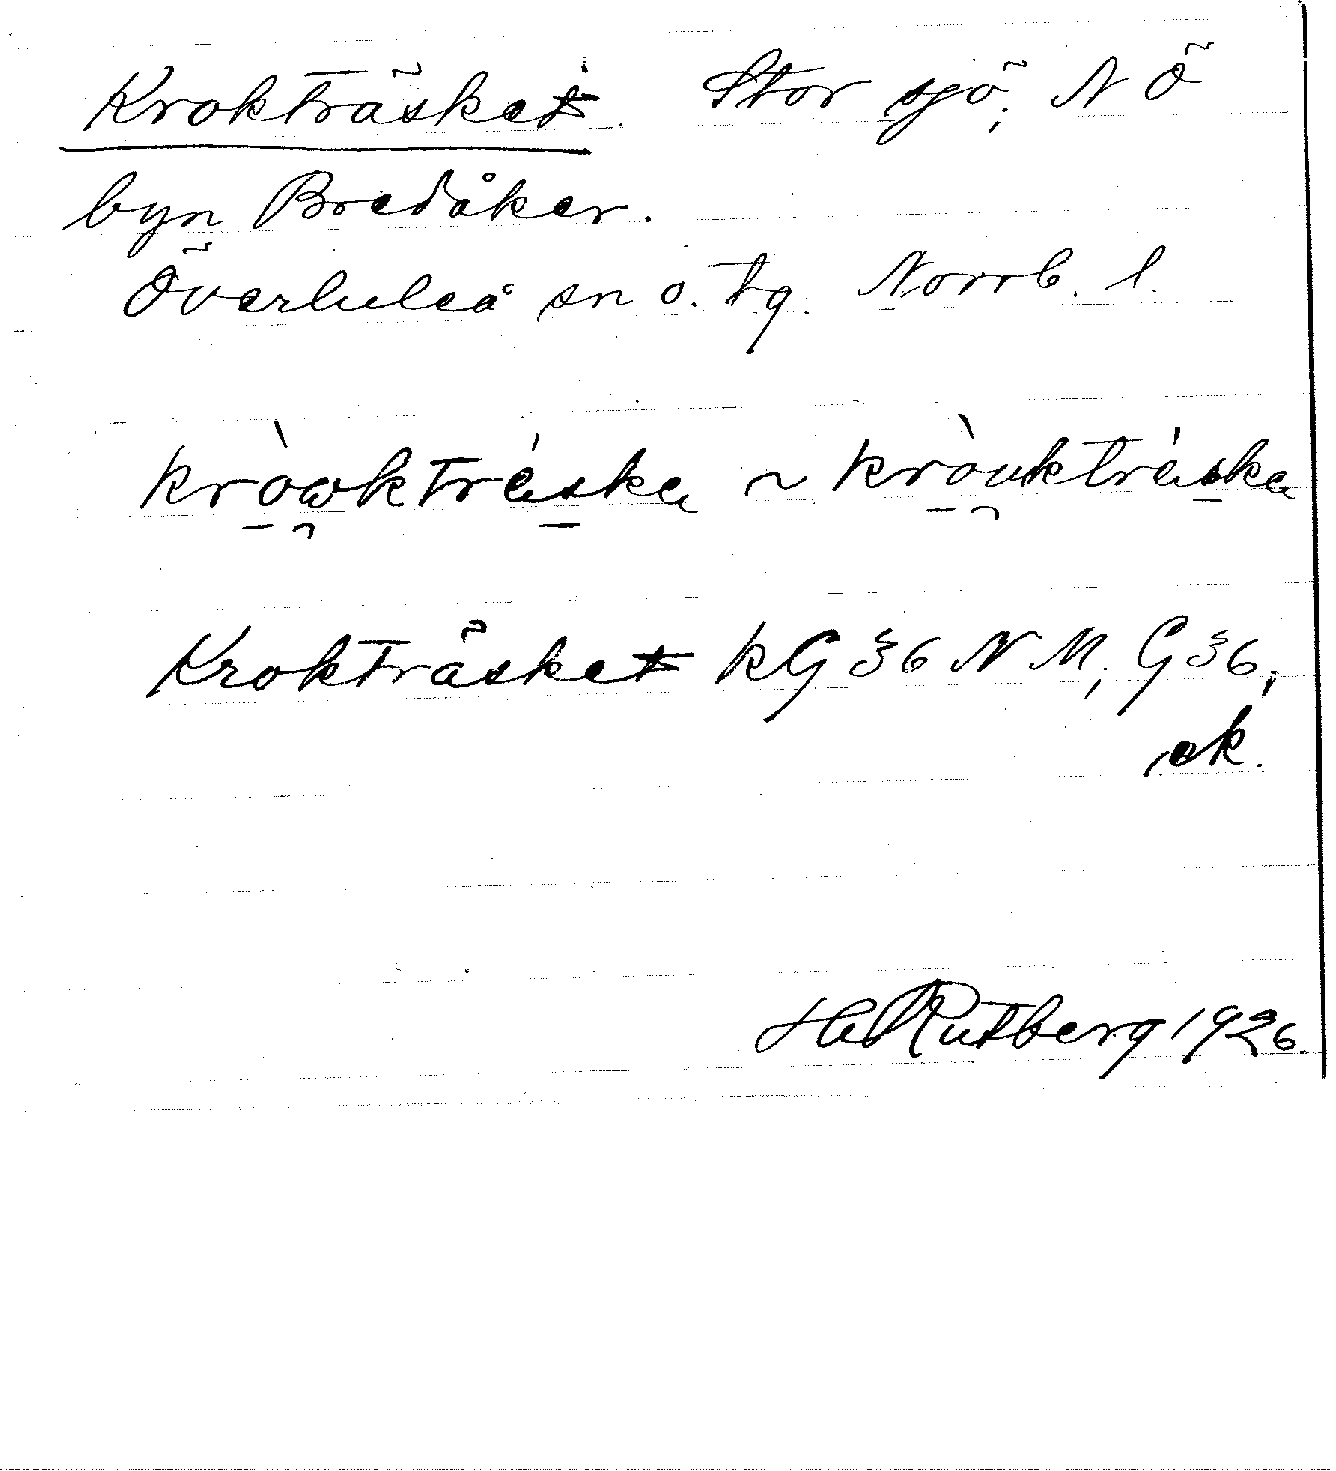 Krokträsket. Stor sjö, N Ö
byn Bredåker.
Överluleå sn o. tg. Norrb. l.
kròwktréska ~ kròuktréska
Krokträsket kG 36 N M, G 36,
ek.
Rutberg 1926.